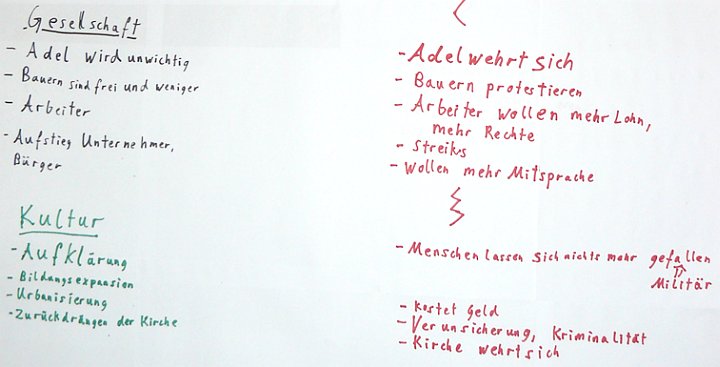 Gesellschaft
- Adel wird unwichtig
- Bauern sind frei und weniger
- Arbeiter
- Aufstieg Unternehmer,
Bürger
Kultur
- Aufklärung
- Bildungsexpansion
- Urbanisierung
- Zurückdrängen der Kirche
- Adel wehrt sich
- Bauern protestieren
- Arbeiter wollen mehr Lohn,
mehr Rechte
- Streiks
- wollen mehr Mitsprache
- Menschen lassen sich nichts mehr gefallen
Militär
- kostet Geld
- Verunsicherung, Kriminalität
- Kirche wehrt sich